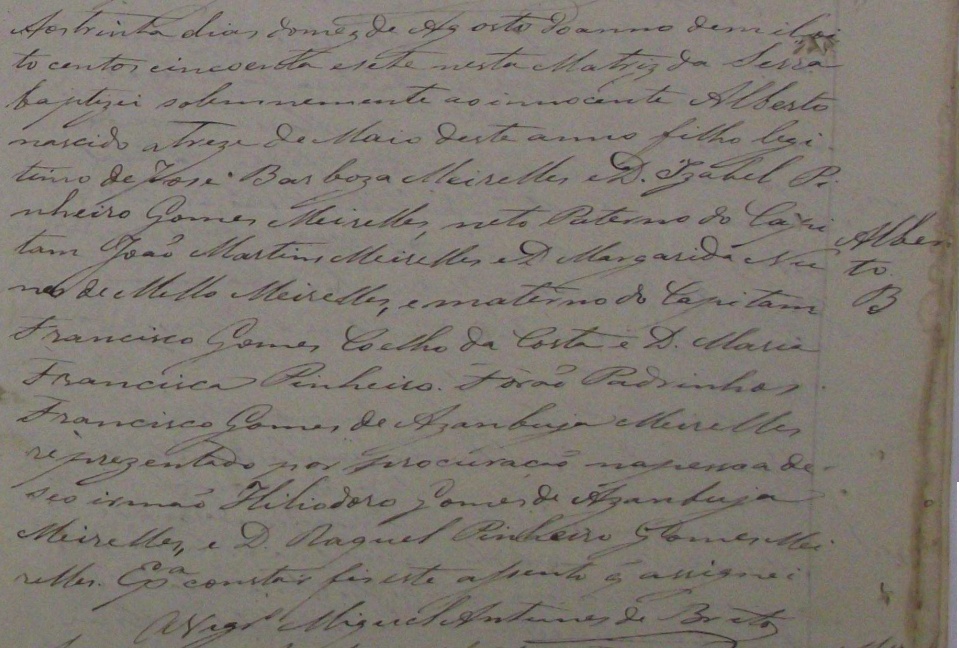 Aos trinta dias do mez de Agosto do anno de mil oi
to centos cincoenta e sete nesta Matriz da Serra
baptizei solemnemente ao innocente Alberto
nascido a treze de Maio deste anno filho legi
timo de José Barboza Meirelles e D. Izabel Pi
nheiro Gomes Meirelles, neto Paterno do Capi
tam João Martins Meirelles e D Margarida Nu
nes de Mello Meirelles, e materno do Capitam
Francisco Gomes Coelho da Costa e D. Maria
Francisca Pinheiro. Forão Padrinhos
Francisco Gomes de Azambuja Meirelles
reprezentado por procuracão na pessoa de
seo irmão Hiliodoro Gomes de Azambuja
Meirelles, e D. Raquel Pinheiro Gomes Mei
relles. E pa constar fis este assento q assignei
O Vigro Miguel Antunes de Brito
Alber
to.
B